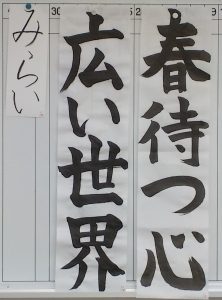 春待つ心
広い世界
みらい
30